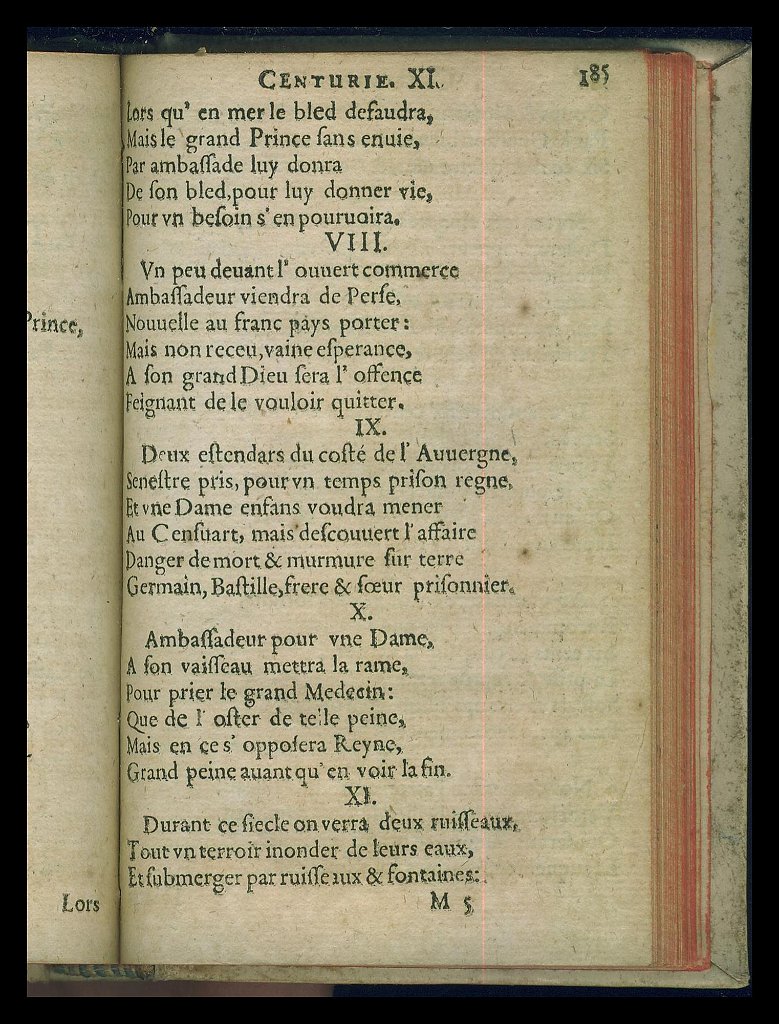 Prince,
Lors
CENTURIE. XI. 185
Lors qu' en mer le bled defaudra,
Mais le grand Prince ſans enuie,
Par ambaſſade luy donra
De ſon bled, pour luy donner vie,
Pour vn beſoin s' en pouruoira.
VIII.
Vn peu deuant l' ouuert commerce
Ambaſſadeur viendra de Perſe,
Nouuelle au franc pays porter:
Mais non receu, vaine eſperance,
A ſon grand Dieu ſera l' offence
Feignant de le vouloir quitter.
IX.
Deux eſtendars du coſté de l' Auuergne,
Seneſtre pris, pour vn temps priſon regne,
Et vne Dame enfans voudra mener
Au Cenſuart, mais deſcouuert l' affaire
Danger de mort & murmure ſur terre
Germain, Baſtille, frere & ſœur priſonnier.
X.
Ambaſſadeur pour vne Dame,
A ſon vaiſſeau mettra la rame,
Pour prier le grand Medecin:
Que de l' oſter de telle peine,
Mais en ce s' oppoſera Reyne,
Grand peine auant qu' en voir la fin.
XI.
Durant ce ſiecle on verra deux ruiſſeaux,
Tout vn terroir inonder de leurs eaux,
Et ſubmerger par ruiſſeaux & fontaines:
M 5